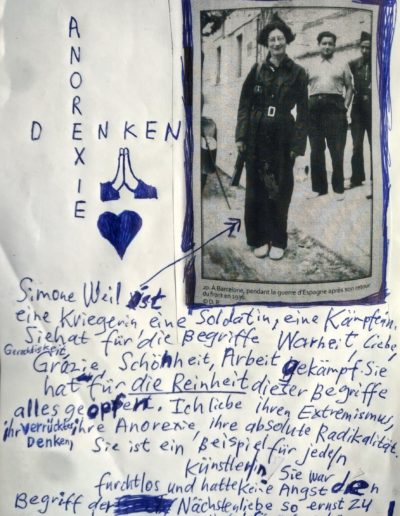 ANOREXIE
DENKEN
20. A Barcelone, pendant la guerre d'Espagne après son retour
du front en 1936.
© D. R.
Simone Weil ist
eine Kriegerin eine Soldatin, eine Kämpferin.
Sie hat für die Begriffe Warheit, Liebe,
Gerechtigkeit,
Grazie, Schönheit, Arbeit gekämpf. Sie
hat für die Reinheit dieser Begriffe
alles geopfert. Ich liebe ihren Extremismus,
ihr verrücktes ihre Anorexie, ihre absolute Radikalität.
Denken, Sie ist ein Beispiel für jede/n
Künstler/n Sie war
furchtlos und hatte keine Angst den
Begriff der Nächstenliebe so ernst zu